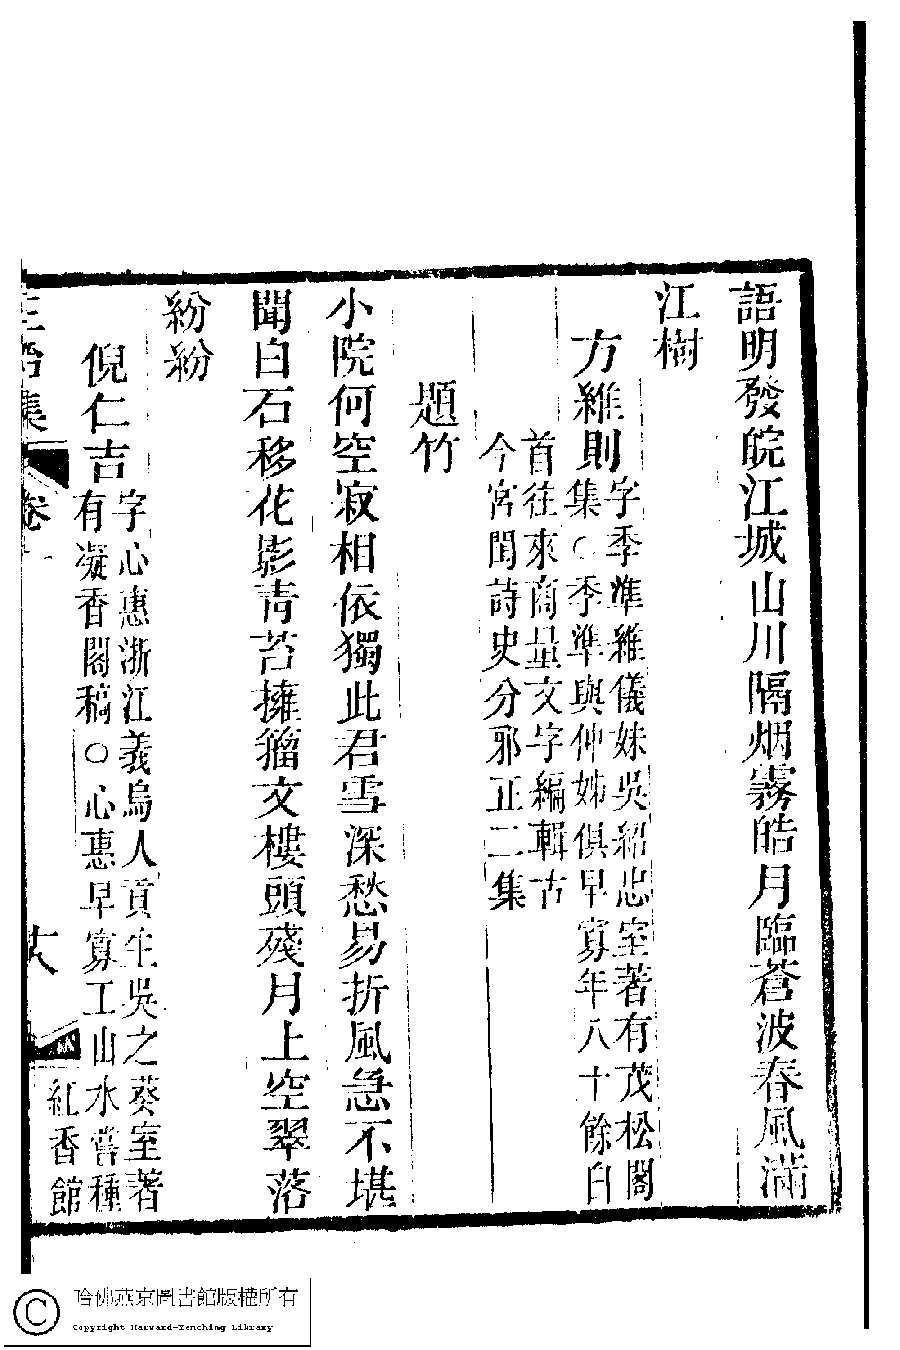 語明發皖江城山川隔烟霧皓月臨蒼波春風滿
江樹
方維則
字季準維儀妹吳紹忠室著有茂松閣
集○季準與仲姊俱早寡年八十餘白
首往來商量文字編輯古
今宮閨詩史分邪正二集
題竹
小院何空寂相依獨此君雪深愁易折風急不堪
聞白石移花影青苔擁籀文樓頭殘月上空翠落
紛紛
倪仁吉
字心惠浙江義烏人貢生吳之葵室著
有凝香閣稿○心惠早寡工山水嘗種
集
卷十一
十八
紅香館
哈佛燕京圖書館版權所有
Copyright Harvard-Yenching Library